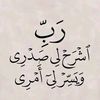 رَبِّ
اشْرَحْ لِي صَدْرِي
وَيَسِّرْ لِي أَمْرِي